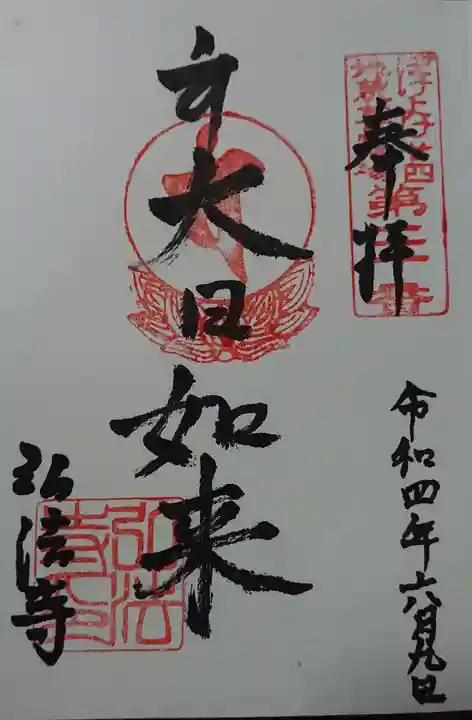 奉拝
令和四年六月九日
大日如来
弘法寺
弘法寺印